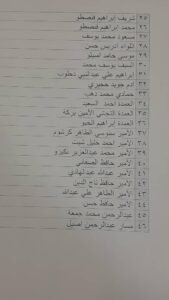 ٢٥ شريف ابراهيم قنصطو
٢٦ محمد ابراهيم قنصطو
٢٧ مسعود محمد يوسف
٢٨ اللواء ادريس حسن
٢٩ موسى حامد
٣٠ السيف يوسف محمد
٣١ ابراهيم علي عبدالنبي
٣٢ آدم جويد حجيري
٣٣ حمادي محمد دهب
٣٤ العمدة احمد السعيد
٣٥ العمدة التجاني الأمين بركة
٣٦ العمدة ابراهيم
٣٧ الأمير سنوسي الطاهر كرشوم
٣٨ الأمير احمد خليل شيت
٣٩ الأمير محمد عبدالعزيز
٤٠ الأمير حافظ الصافي
٤١ الأمير عبدالله عبدالهادي
٤٢ الأمير حافظ تاج الدين
٤٣ الأمير الطاهر علي عبدالله
٤٤ الأمير حافظ حسن
٤٥ عبدالرحمن محمد جمعة
٤٦ مسار عبدالرحمن اصيل